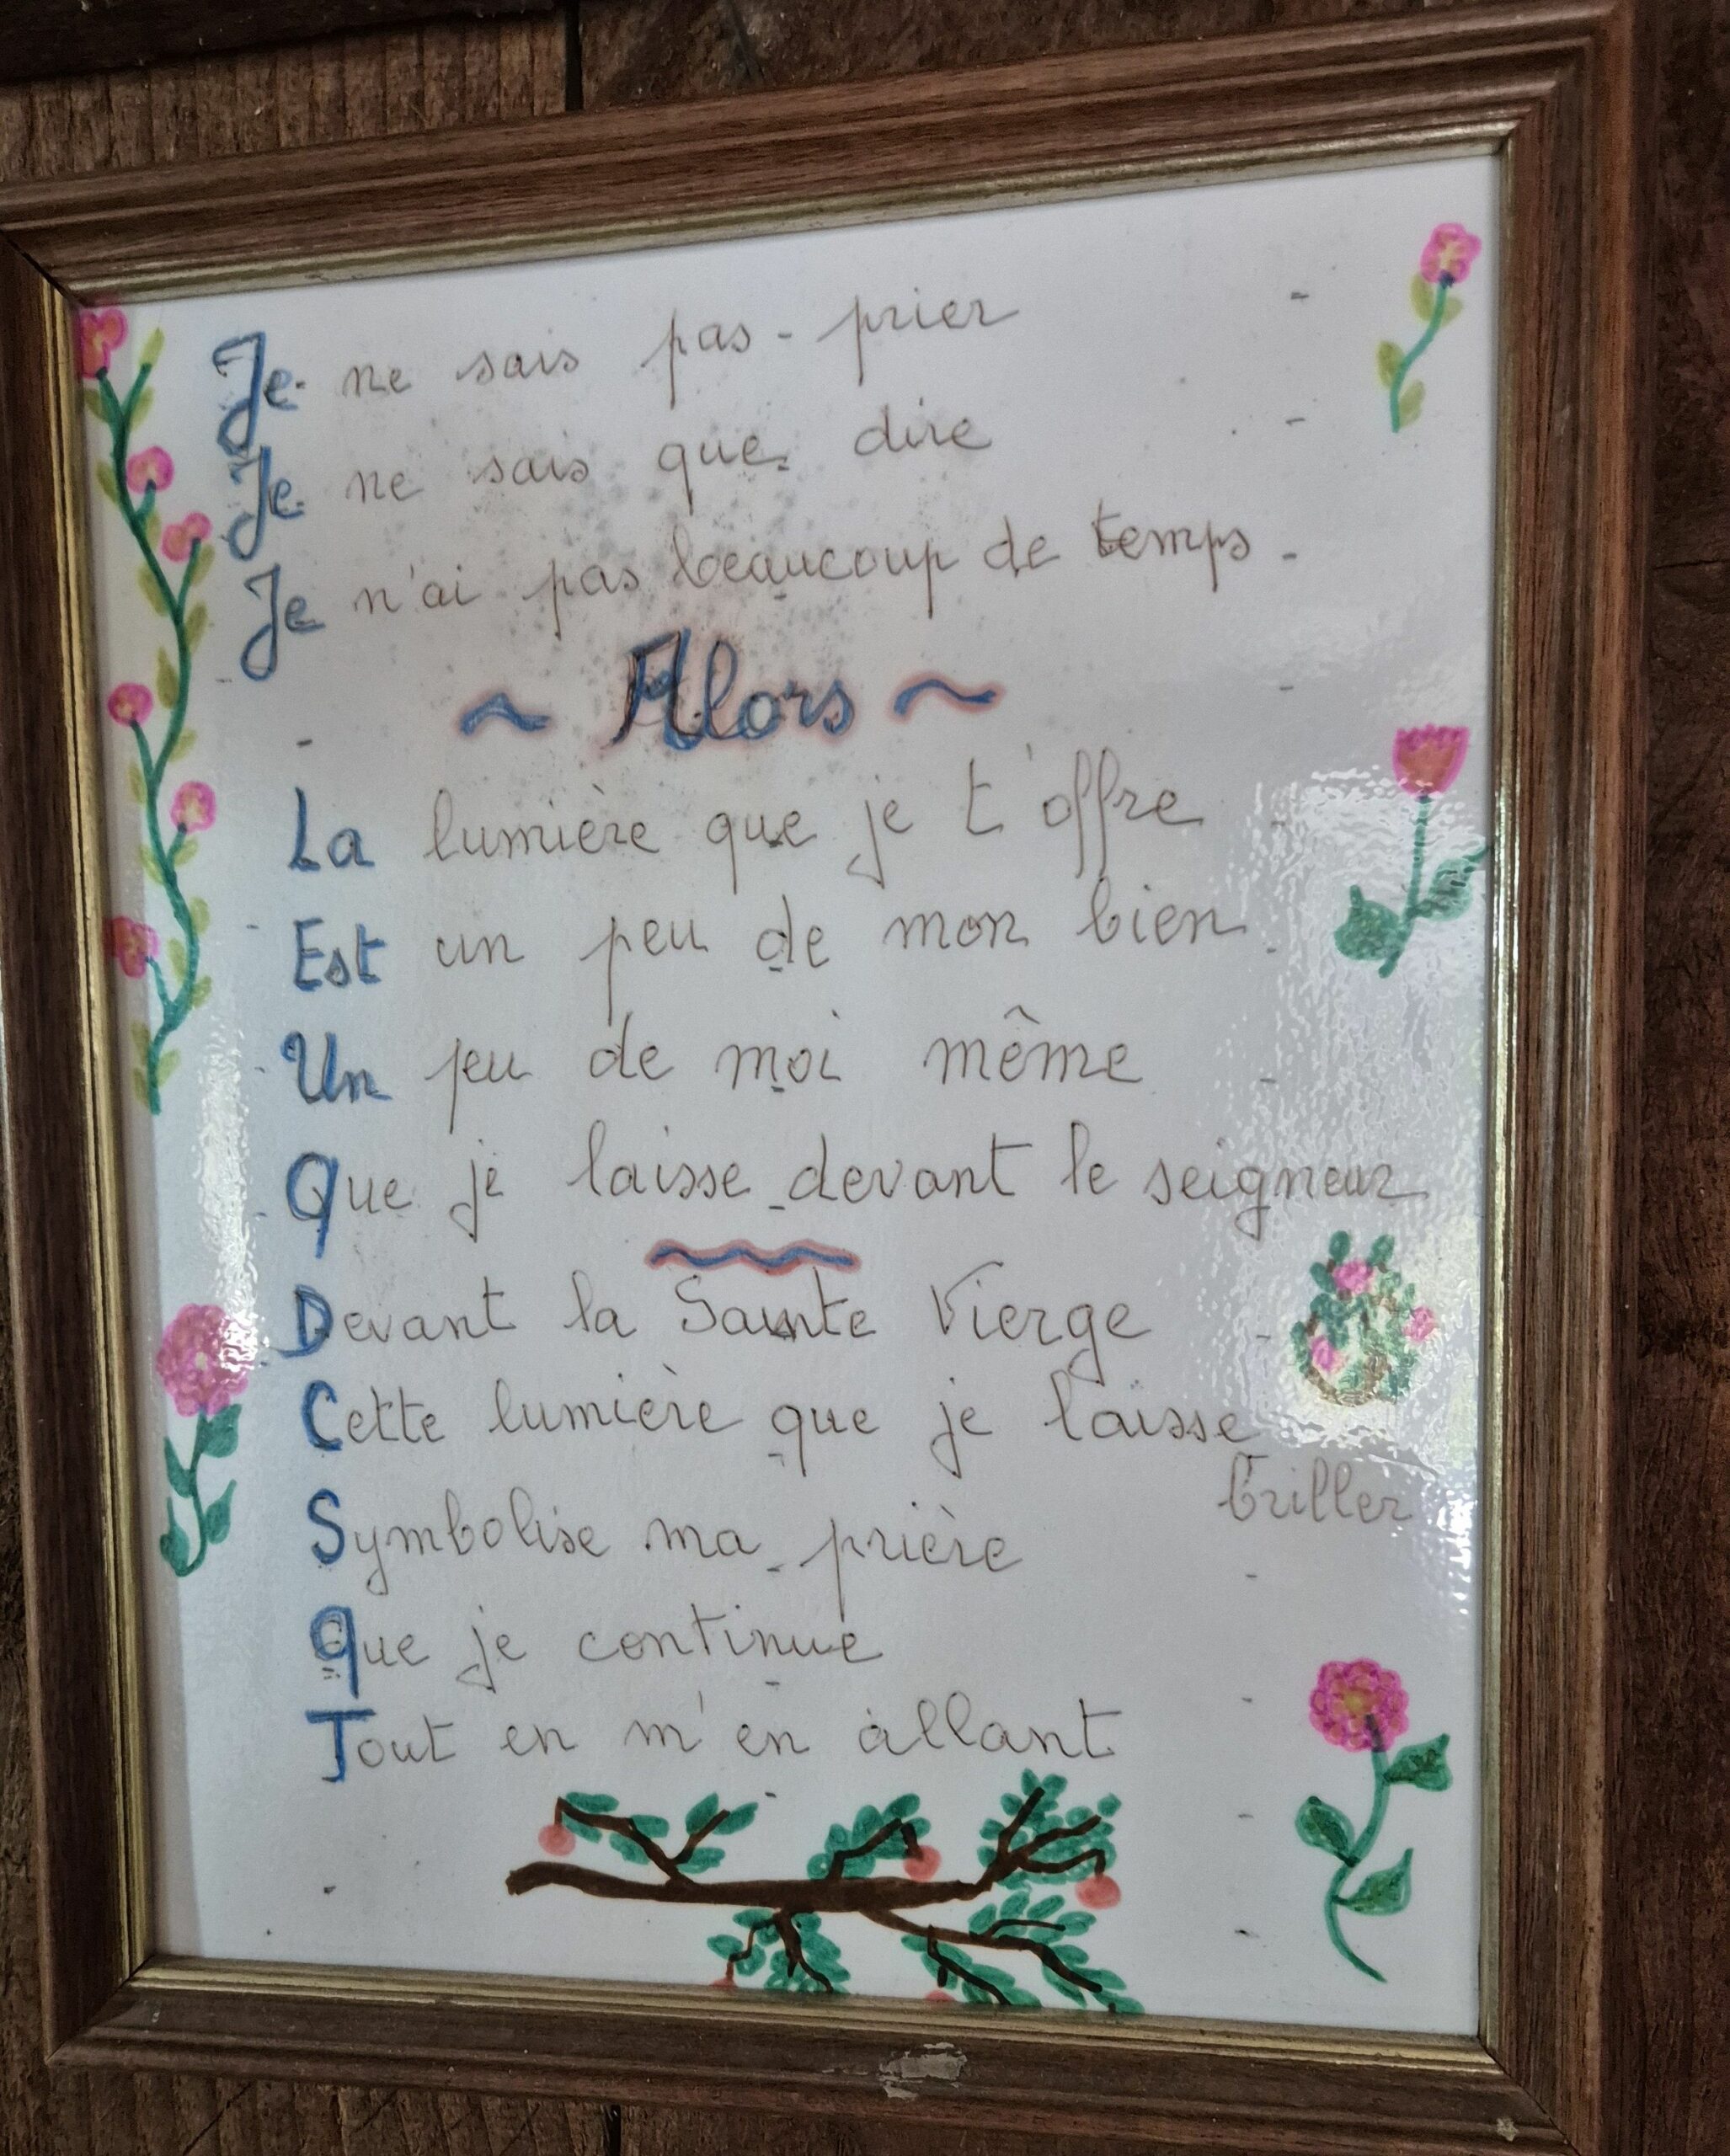 Je ne sais pas prier
Je ne sais que dire
Je n'ai pas beaucoup de temps
~ Alors ~
La lumière que je t'offre
Est un peu de mon bien
Un peu de moi même
Que je laisse devant le seigneur
Devant la Sainte Vierge
Cette lumière que je laisse
briller
Symbolise ma prière
que je continue
Tout en m'en allant